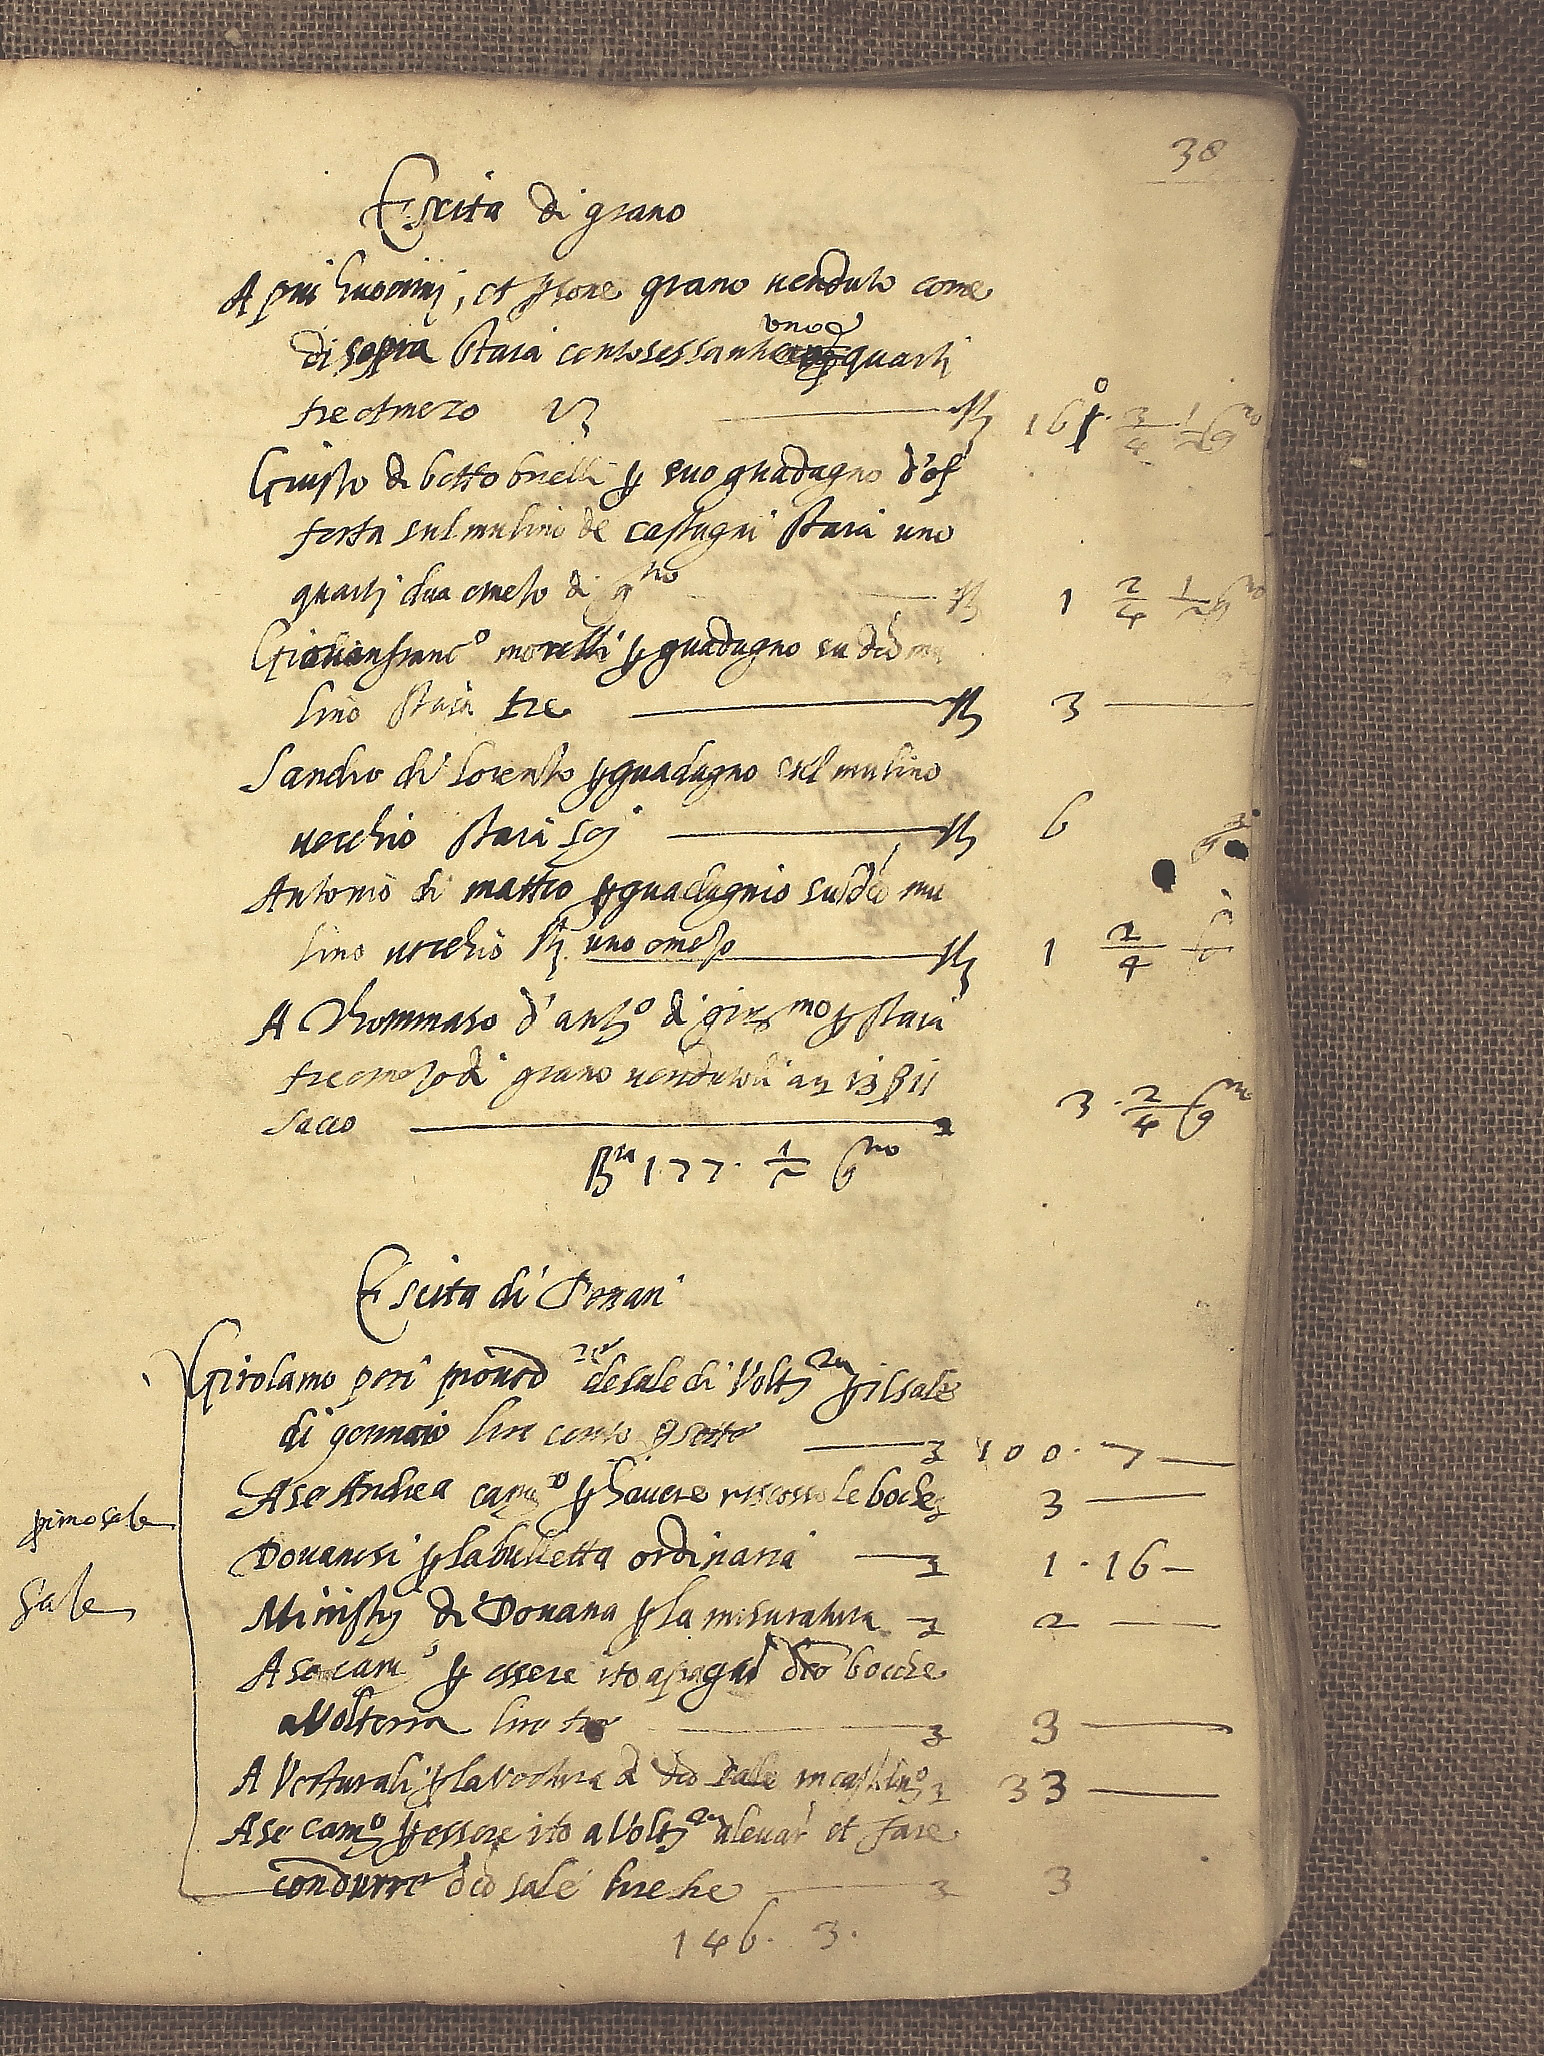 38
Escita di grano
A piu huomini, et p̱sone grano uenduto come
di sopra staia centosessanta uno e quarti
tre et mezo st 161 3/4 1/2 gno
Giusto di betto brielli p̱ suo guadagno d'of
ferta sul mulino de castagni staia uno
quarti dua e mezo di gno st 1 2/4 1/2 gno
Giouanfranco morelli p̱ guadagno su dco mu
lino staia tre st 3
Sandro di lorenzo p̱ guadagno del mulino
uecchio staia sej st 6
Antonio di matteo p̱ guadagnio sul dco mu
lino uecchio st. uno e mezo st 1 2/4
A Thommaso d'anto di girmo p̱ staia
tre e mezo di grano uendutoli a 13 8 il
sacco 3 2/4 gno
sta 177 1/2 gno
Escita di Denari
Girolamo peri proued re de sale di Voltra p̱ il sale
di gennaio lire cento p̱ 100. 7
A se Andrea camo p̱ hauere riscosso le boche 3
Douanesi p̱ la bulletta ordinaria 1. 16
Ministrj di Douana p̱ la misuratura 2
A se camo p̱ essere ito a pagar dco bocche
a Volterra lire tre 3
A Vetturali p̱ la vettura di dco sale in castello 33
A se camo p̱ essere ito a Voltra a leuar et fare
condurre dco sale lire tre 3
146. 3.
primo sale
sale